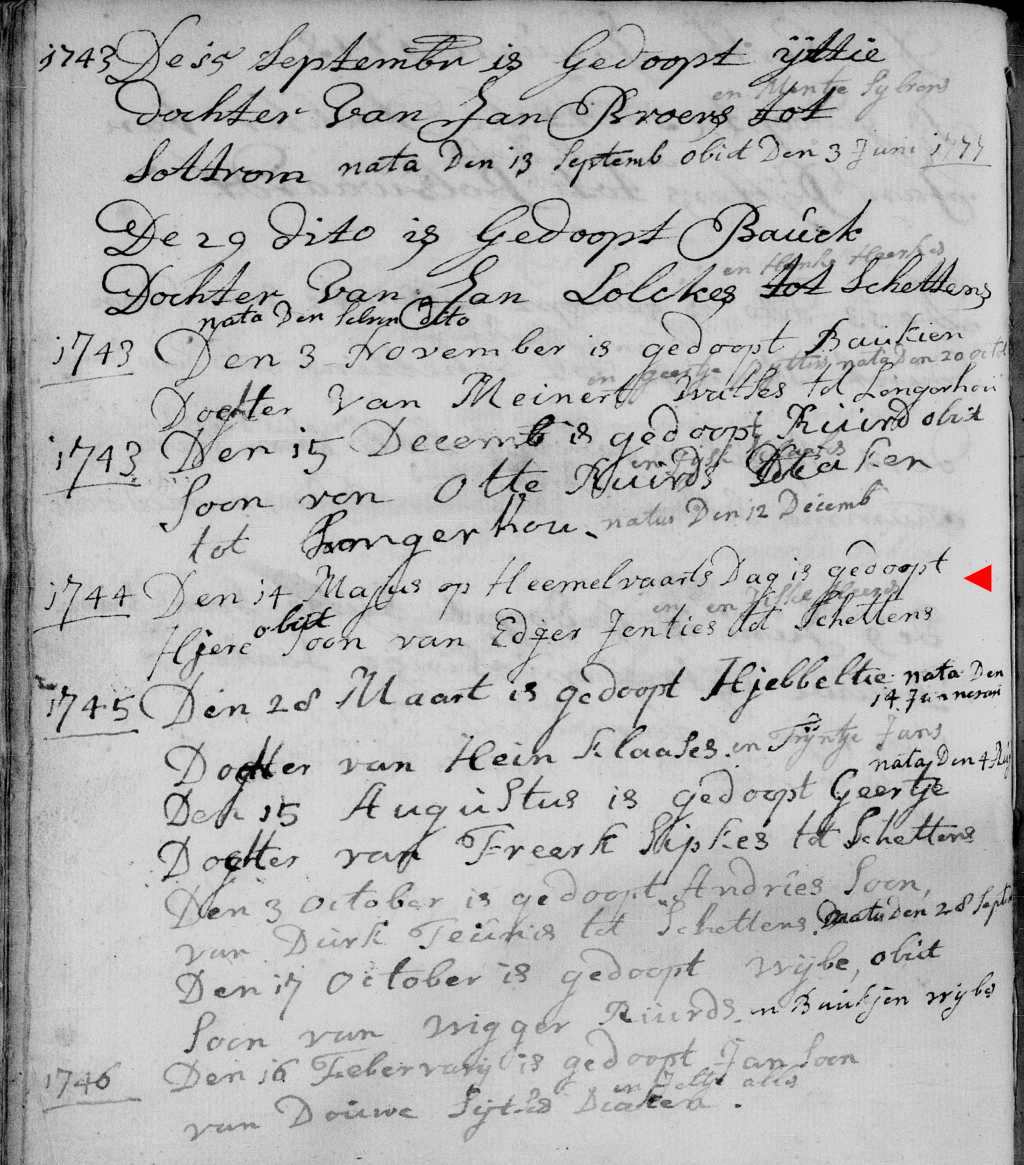 1743 De 15 Septembr is Gedoopt ÿttie
en Mintje Sybrens
Dochter Van Jan Broers tot
Sottrom nata Den 13 Septemb obiit Den 3 Juni 1777
De 29 dito is Gedoopt Baúck
en Hinke Heerkes
Dochter Van Jan Lolckes tot Schettens
nata Den Selven Dito
1743 Den 3 November is gedoopt Baukien
en geertje nata Den 20 octob
Dogter Van Meinert Watses tot Longerhou
1743 Den 15 Decemb is gedoopt Ruurd obiit
en
Soon van Otte Ruurds Diaken
tot Longerhou. natus Den 12 Decemb
1744 Den 14 Majus op Heemelvaarts Dag is gedoopt
en
Hjere obiit Soon van Edger Jenties tot Schettens
1745 Den 28 Maart is gedoopt Hjebbeltie nata Den
14 Januwari
Dogter van Hein Klaases en Trÿntje Jans
nata Den 4 Aug
Den 15 Augústus is gedoopt Geertje
Dogter van Freerk Sipkes tot Schettens
Den 3 October is gedoopt Andries Soon,
van Durk Teunis tot Schettens. natus Den 28 Septem
Den 17 October is gedoopt Wijbe, obiit
Soon van Wigger Ruurds en Baukjen Wijbes
1746 Den 16 Febervarij is gedoopt Jan Soon
en Jeltje
van Douwe Sijtses Diaken.